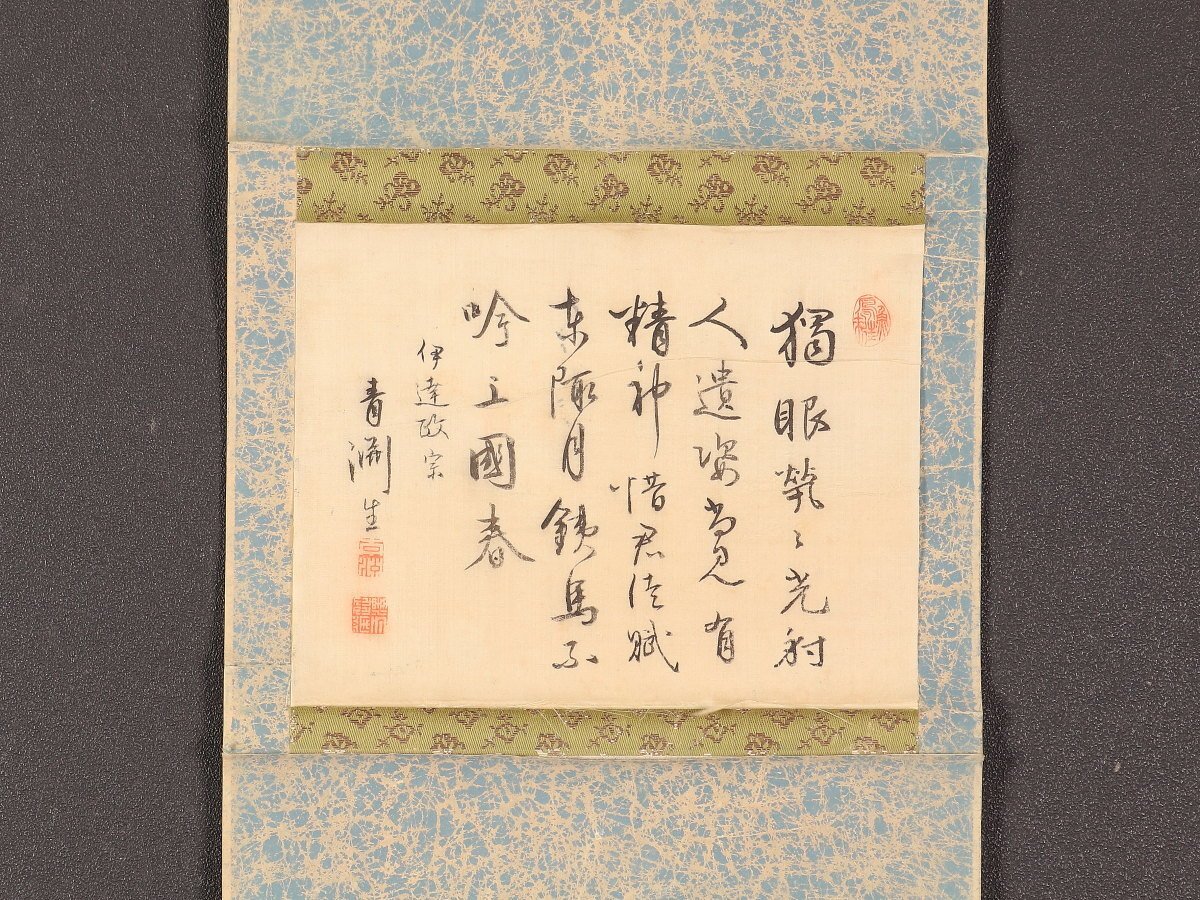 獨眼煢々光射
人遺姿尚見有
精神惜君徒賦
東陬月銕馬不
吟上國春
伊達政宗
青淵生